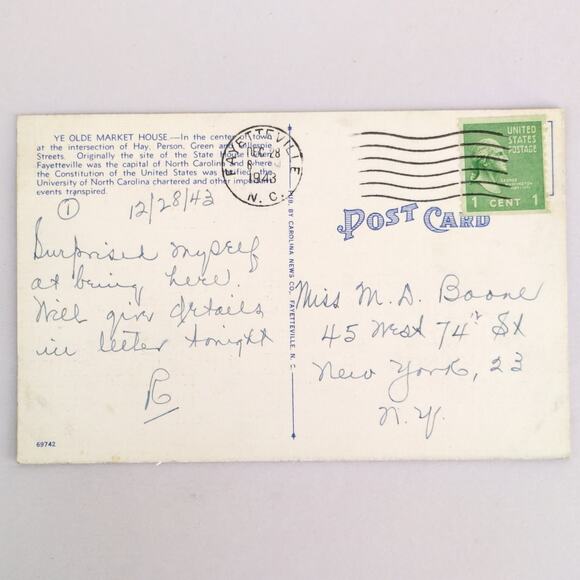 YE OLDE MARKET HOUSE.—In the center of town
at the intersection of Hay, Person, Green and Gillespie
Streets. Originally the site of the State House when
Fayetteville was the capital of North Carolina and where
the Constitution of the United States was ratified, the
University of North Carolina chartered and other important
events transpired.
① 12/28/43
Surprised myself
at being here.
Will give details
in letter tonight
R
69742
PUB. BY CAROLINA NEWS CO., FAYETTEVILLE, N. C.
FAYETTEVILLE
DEC 28
1943
N. C.
UNITED
STATES
POSTAGE
GEORGE
WASHINGTON
1 CENT 1
POST CARD
Miss M. D. Boone
45 West 74th St
New York, 23
N.Y.